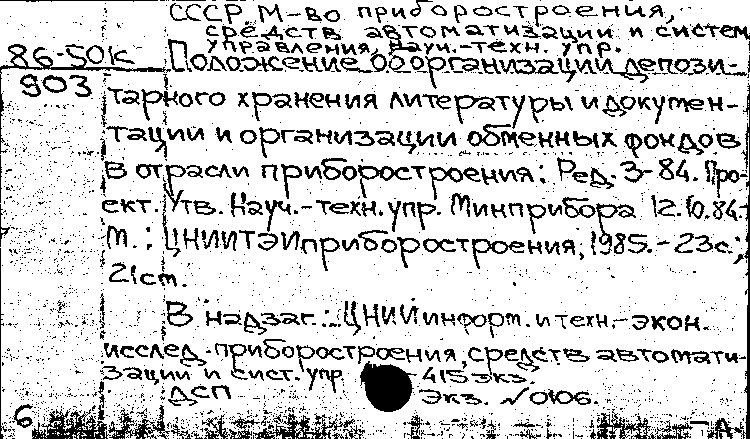 СССР М-во приборостроения,
средств автоматизации и систем
управления, Науч.-техн. упр.
86-50К Положение об организации депози-
903
тарного хранения литературы и докумен-
тации и организации обменных фондов
в отрасли приборостроения: Ред. 3-84. Про-
ект. Утв. Науч.-техн. упр. Минприбора 12.10.84.-
М.: ЦНИИТЭИприборостроения, 1985.- 23с.;
21ст.
В надзаг.: ЦНИИ информ. и техн.-экон.
исслед. приборостроения, средств автомати-
зации и сист. упр - 415 экз.
ДСП Экз. №0106.
6